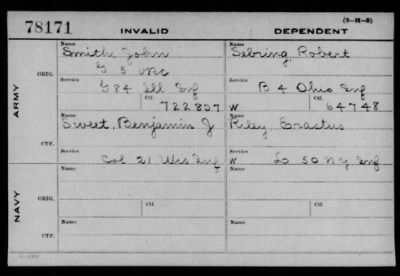 78171 INVALID DEPENDENT (3-M-8)
ARMY
ORIG.
Name
Smith, John
G 5 VRC
Service
G 84 Ill Inf
Ctf.
722857
Name
Sebring Robert
Service
B 4 Ohio Inf
Ctf.
W 64748
CTF.
Name
Sweet, Benjamin J
Service
Col 21 Wis Inf
Name
Riley Erastus
Service
W Lo 50 NY Inf
NAVY
ORIG.
Name
Ctf.
Name
Ctf.
CTF.
Name
Name